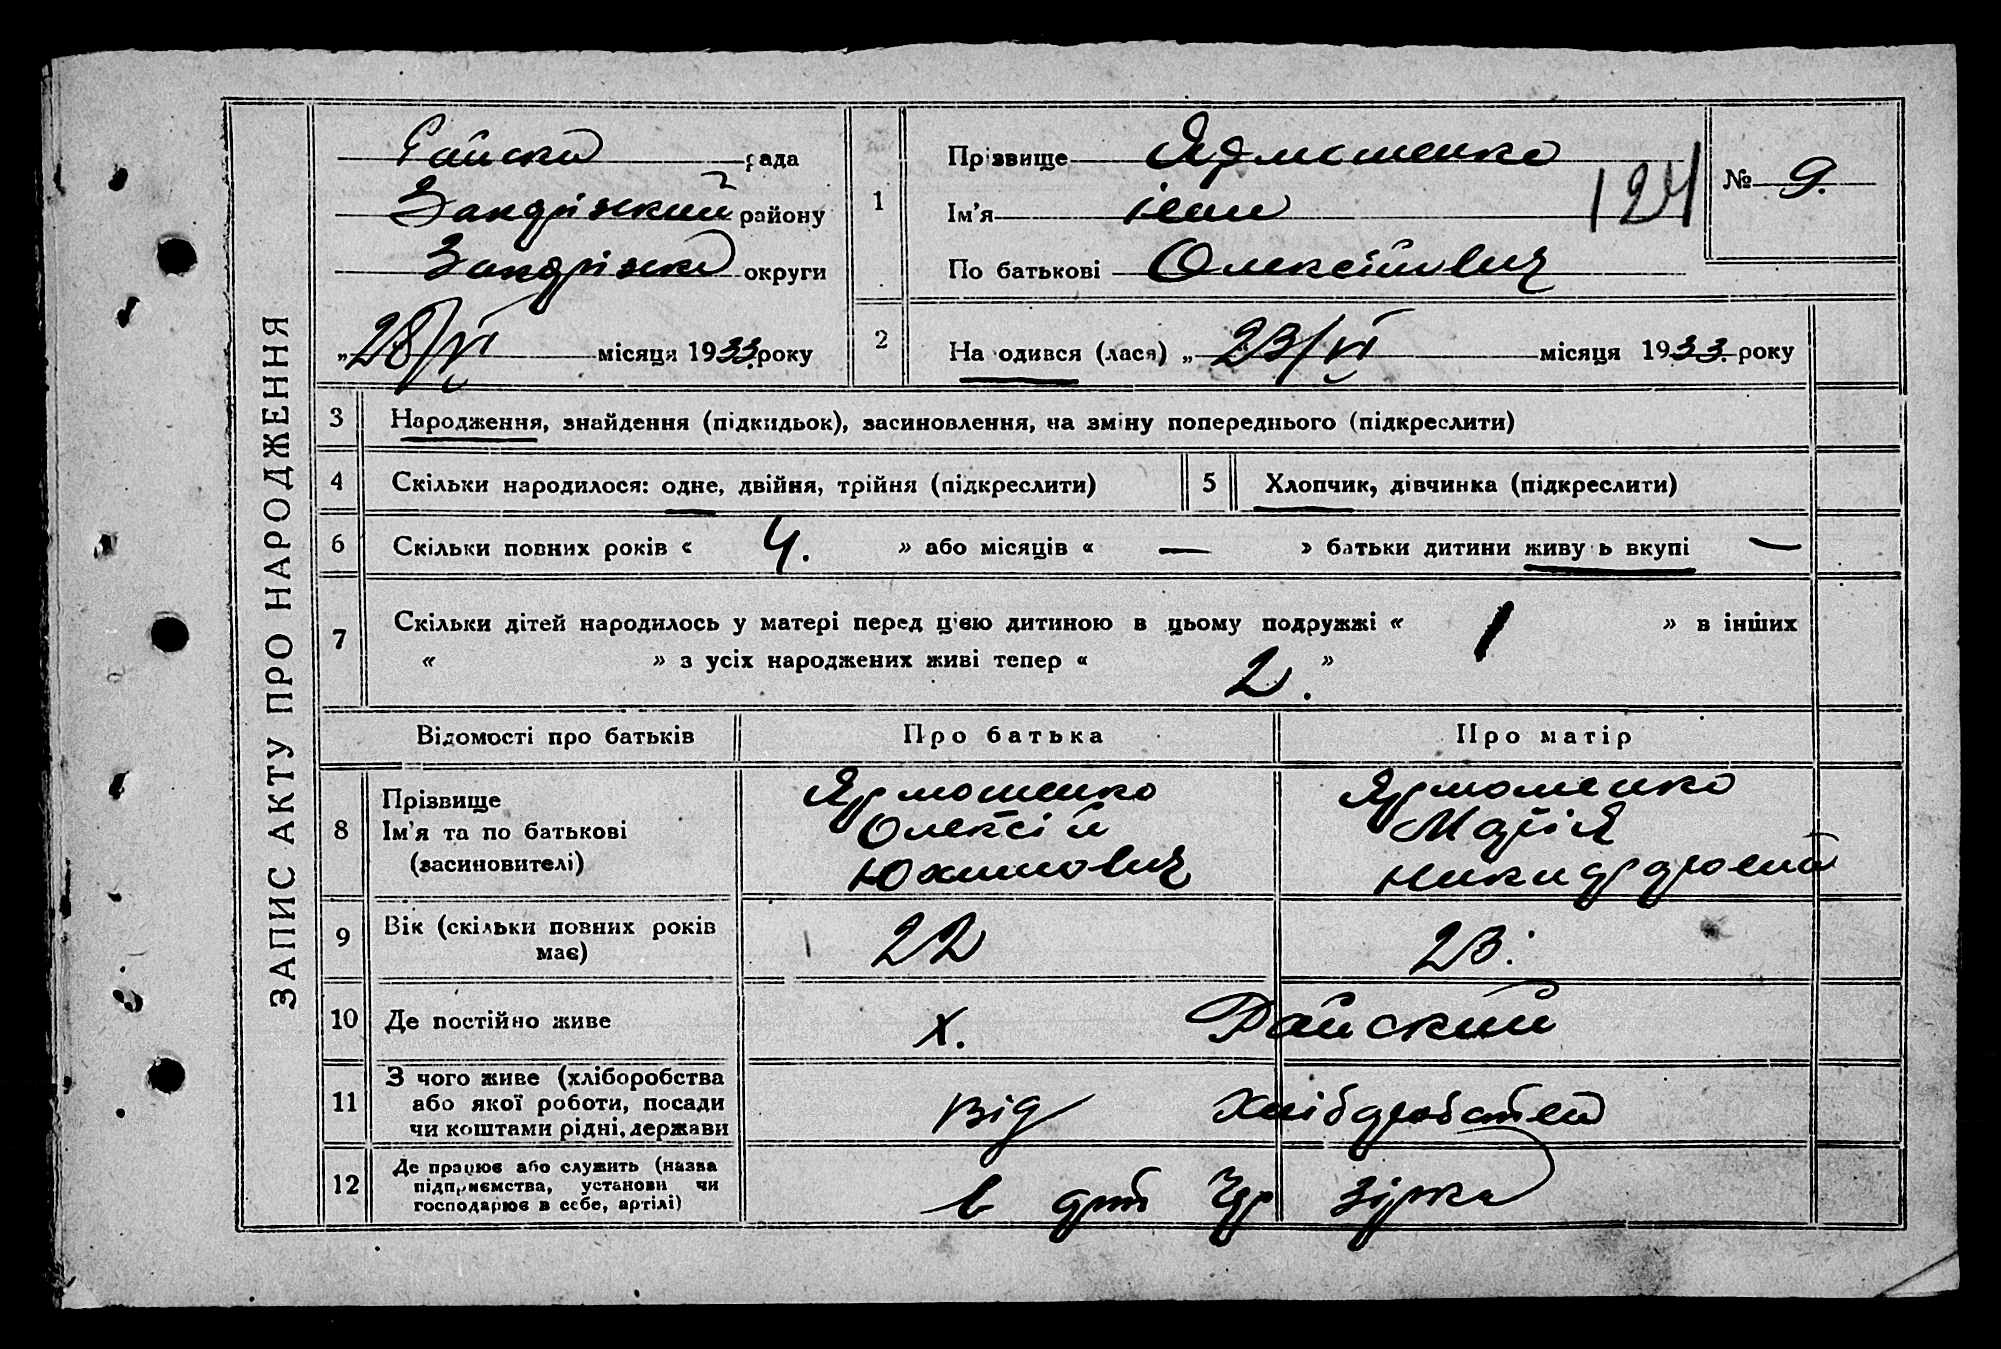 ЗАПИС АКТУ ПРО НАРОДЖЕННЯ
Райська рада
району
округи
„28/VI місяця 1933 року
1
Прізвище Ярмошенко
Ім'я Іван
По батькові Олексійович
124
№ 9.
2
На одився (лася) „23/VI місяця 1933. року
3 Народження, знайдення (підкидьок), засиновлення, на зміну попереднього (підкреслити)
4 Скільки народилося: одне, двійня, трійня (підкреслити)
5 Хлопчик, дівчинка (підкреслити)
6 Скільки повних років « 4. » або місяців « — » батьки дитини живу ь вкупі —
7 Скільки дітей народилось у матері перед цією дитиною в цьому подружжі « 1 » в інших
« » з усіх народжених живі тепер « 2. »
Відомості про батьків Про батька Про матір
8 Прізвище
Ім'я та по батькові
(засиновителі)
Ярмошенко
Олексій
Юхимович
Ярмошенко
Марія
9 Вік (скільки повних років
має)
22
23.
10 Де постійно живе х. Райский
11 З чого живе (хліборобства
або якої роботи, посади
чи коштами рідні, держави
від
12 Де працює або служить (назва
підприємства, установи чи
господарює в себе, артілі)
в зірка